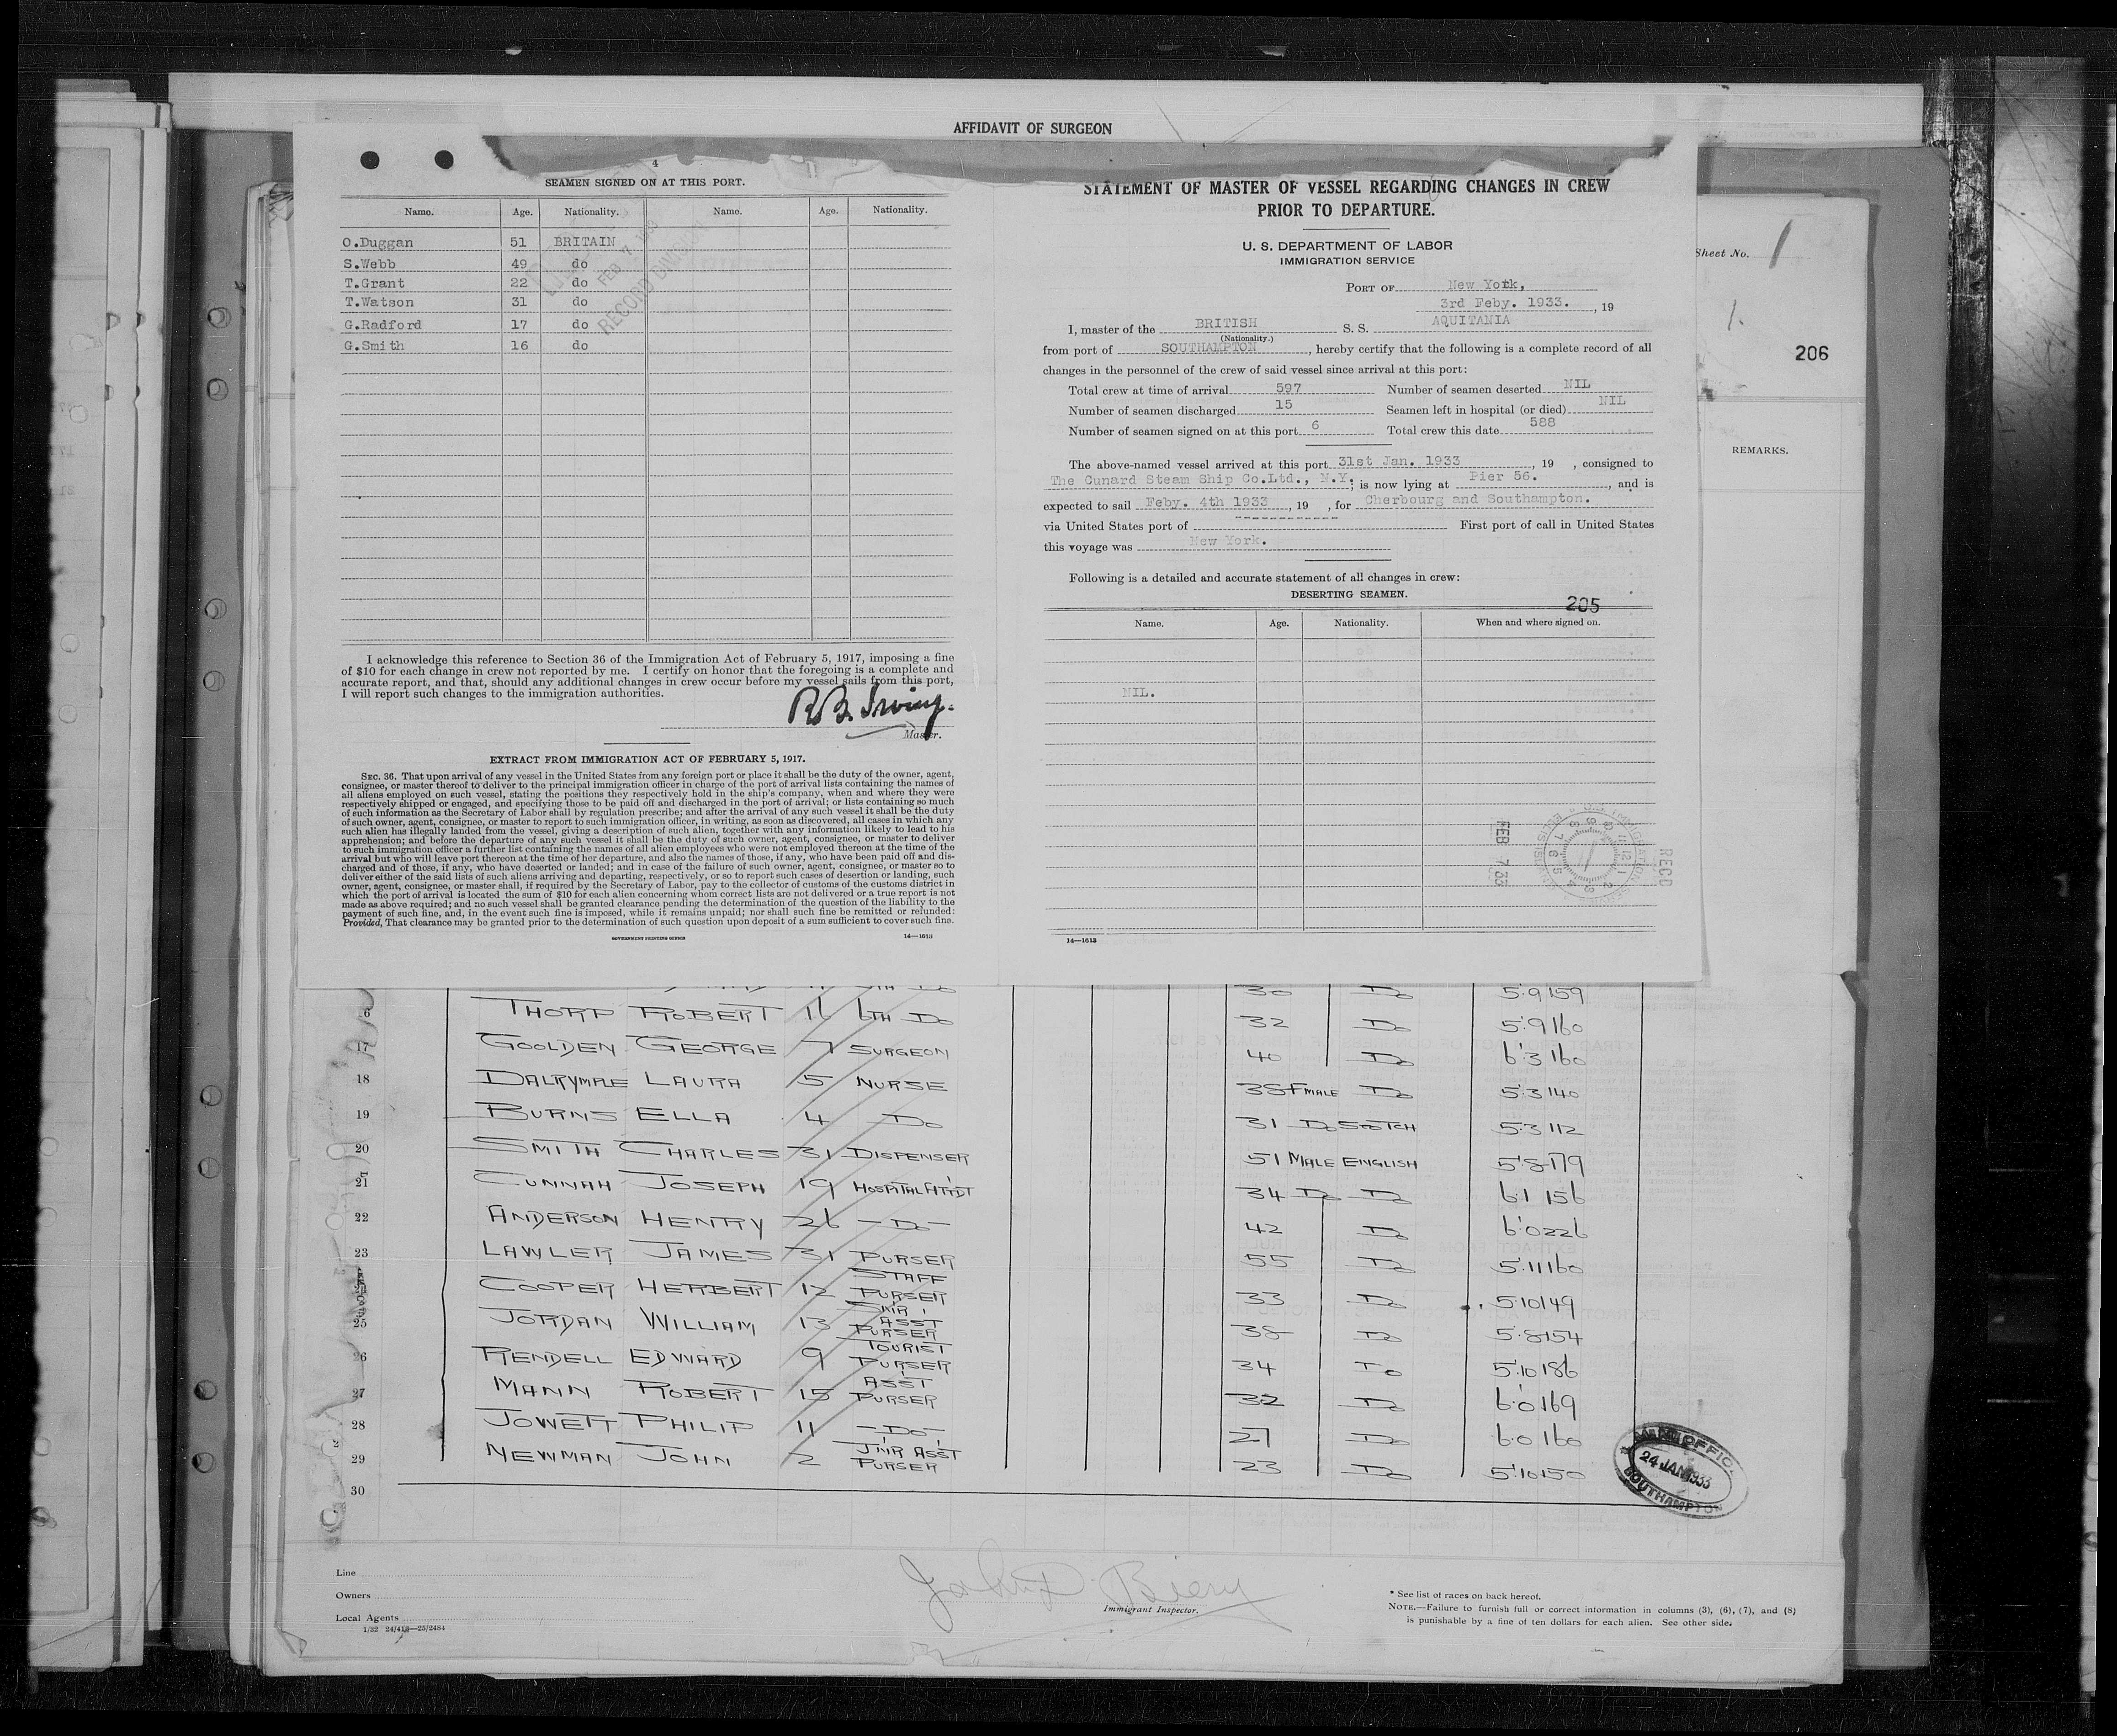 AFFIDAVIT OF SURGEON
4
SEAMEN SIGNED ON AT THIS PORT.
Name. Age. Nationality. Name. Age. Nationality.
O.Duggan 51 BRITAIN
S.Webb 49 do
T.Grant 22 do
T.Watson 31 do
G.Radford 17 do
G.Smith 16 do
FEB 7
RECORD DIVISION
I acknowledge this reference to Section 36 of the Immigration Act of February 5, 1917, imposing a fine
of $10 for each change in crew not reported by me. I certify on honor that the foregoing is a complete and
accurate report, and that, should any additional changes in crew occur before my vessel sails from this port,
I will report such changes to the immigration authorities.
R.B. Irving.
Master.
EXTRACT FROM IMMIGRATION ACT OF FEBRUARY 5, 1917.
SEC. 36. That upon arrival of any vessel in the United States from any foreign port or place it shall be the duty of the owner, agent,
consignee, or master thereof to deliver to the principal immigration officer in charge of the port of arrival lists containing the names of
all aliens employed on such vessel, stating the positions they respectively hold in the ship's company, when and where they were
respectively shipped or engaged, and specifying those to be paid off and discharged in the port of arrival; or lists containing so much
of such information as the Secretary of Labor shall by regulation prescribe; and after the arrival of any such vessel it shall be the duty
of such owner, agent, consignee, or master to report to such immigration officer, in writing, as soon as discovered, all cases in which any
such alien has illegally landed from the vessel, giving a description of such alien, together with any information likely to lead to his
apprehension; and before the departure of any such vessel it shall be the duty of such owner, agent, consignee, or master to deliver
to such immigration officer a further list containing the names of all alien employees who were not employed thereon at the time of the
arrival but who will leave port thereon at the time of her departure, and also the names of those, if any, who have been paid off and dis-
charged and of those, if any, who have deserted or landed; and in case of the failure of such owner, agent, consignee, or master so to
deliver either of the said lists of such aliens arriving and departing, respectively, or so to report such cases of desertion or landing, such
owner, agent, consignee, or master shall, if required by the Secretary of Labor, pay to the collector of customs of the customs district in
which the port of arrival is located the sum of $10 for each alien concerning whom correct lists are not delivered or a true report is not
made as above required; and no such vessel shall be granted clearance pending the determination of the question of the liability to the
payment of such fine, and, in the event such fine is imposed, while it remains unpaid; nor shall such fine be remitted or refunded:
Provided, That clearance may be granted prior to the determination of such question upon deposit of a sum sufficient to cover such fine.
GOVERNMENT PRINTING OFFICE 14—1613
STATEMENT OF MASTER OF VESSEL REGARDING CHANGES IN CREW
PRIOR TO DEPARTURE.
U. S. DEPARTMENT OF LABOR
IMMIGRATION SERVICE
PORT OF New York,
3rd Feby. 1933. , 19
I, master of the BRITISH S. S. AQUITANIA
(Nationality.)
from port of SOUTHAMPTON , hereby certify that the following is a complete record of all
changes in the personnel of the crew of said vessel since arrival at this port:
Total crew at time of arrival 597 Number of seamen deserted NIL
Number of seamen discharged 15 Seamen left in hospital (or died) NIL
Number of seamen signed on at this port 6 Total crew this date 588
The above-named vessel arrived at this port 31st Jan. 1933 , 19 , consigned to
The Cunard Steam Ship Co.Ltd., N.Y. ; is now lying at Pier 56. , and is
expected to sail Feby. 4th 1933 , 19 , for Cherbourg and Southampton.
via United States port of ------------ First port of call in United States
this voyage was New York.
Following is a detailed and accurate statement of all changes in crew:
DESERTING SEAMEN.
205
Name. Age. Nationality. When and where signed on.
NIL.
FEB 7 '33
REC'D
14—1613
Sheet No. 1
1.
206
REMARKS.
30 Do 5'9 159
6 THORP ROBERT 16 6TH Do 32 Do 5'9 160
17 GOOLDEN GEORGE 7 SURGEON 40 Do 6'3 160
18 DALRYMPLE LAURA 5 NURSE 38 FMALE Do 5'3 140
19 BURNS ELLA 4 Do 31 Do SCOTCH 5'3 112
20 SMITH CHARLES 31 DISPENSER 51 MALE ENGLISH 5'8 179
21 CUNNAH JOSEPH 19 HOSPITAL ATT'DT 34 Do Do 6'1 156
22 ANDERSON HENRY 26 —Do— 42 Do 6'0 226
23 LAWLER JAMES 31 PURSER 55 Do 5'11 160
COOPER HERBERT 12 STAFF PURSER 33 Do 5'10 149
25 JORDAN WILLIAM 13 SNR ASST PURSER 38 Do 5'8 154
26 RENDELL EDWARD 9 TOURIST PURSER 34 Do 5'10 186
27 MANN ROBERT 15 ASST PURSER 32 Do 6'0 169
28 JOWETT PHILIP 11 —Do— 27 Do 6'0 160
29 NEWMAN JOHN 2 JNR ASST PURSER 23 Do 5'10 150
30
24 JAN 1933
SOUTHAMPTON
Line
Owners
Local Agents
1/32 24/412—25/2484
Immigrant Inspector.
* See list of races on back hereof.
NOTE.—Failure to furnish full or correct information in columns (3), (6), (7), and (8)
is punishable by a fine of ten dollars for each alien. See other side.